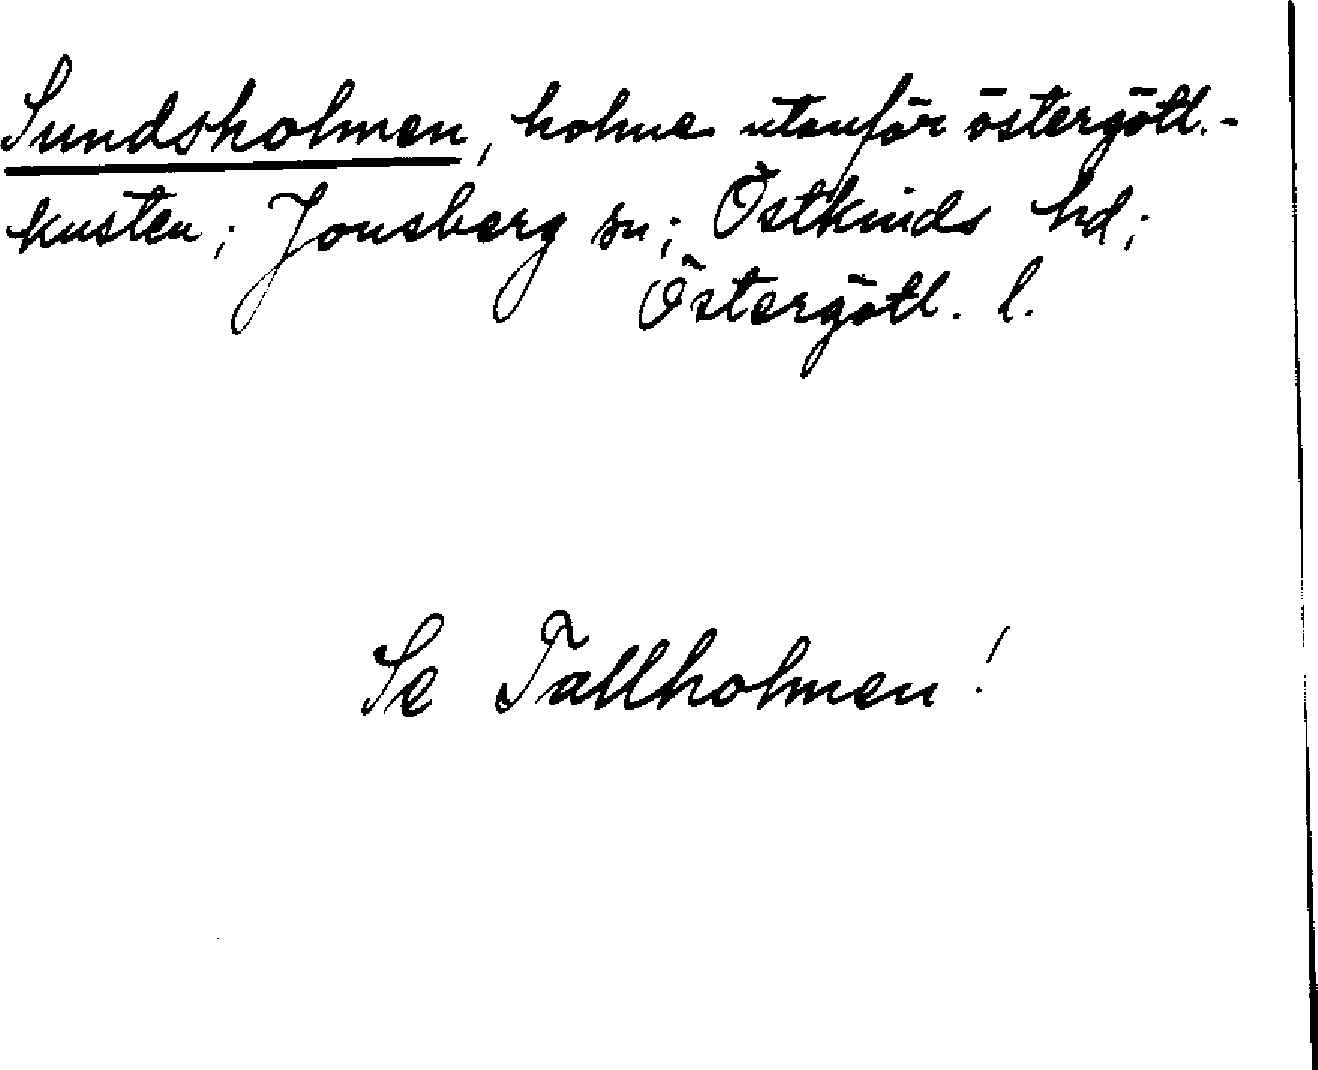 Sundsholmen, holme utanför östergötl.-
kusten; Jonsberg sn; Östkinds hd;
Östergötl. l.
Se Tallholmen!